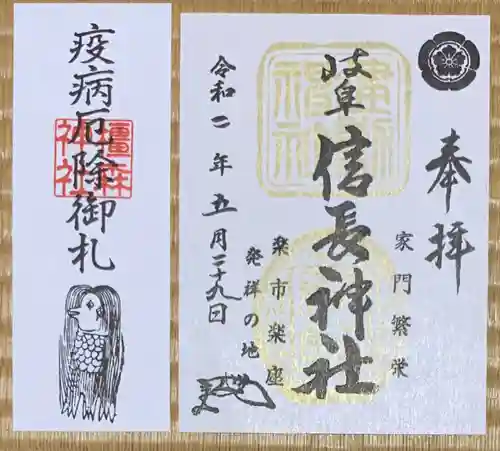 奉拝
家門繁栄
岐阜信長神社
楽市楽座
発祥の地
令和二年五月二十九日
疫病厄除御札
橿森
神社